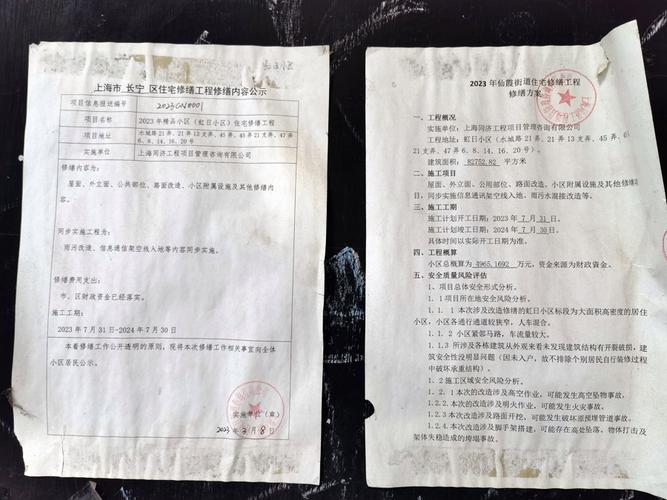 上海市 长宁 区住宅修缮工程修缮内容公示
项目信息报送编号
2023CN0001
项目名称
2023年精品小区(虹日小区)住宅修缮工程
项目地址
水城路21弄、21弄13支弄、45弄、
6、8、14、16、20号)
实施单位
上海同济工程项目管理咨询有限公司
修缮内容为:
屋面、外立面、公共部位、路面改造、小区附属设施及其他修缮内
容。
同步实施工程为:
雨污改造、信息通信架空线入地等内容同步实施。
修缮费用支出:
市、区财政资金已经落实。
施工工期:
2023年7月31日-2024年7月30日
本着修缮工作公开透明的原则,现将本次修缮工作相关事宜向全体
小区居民公示。
实施单位(章)
2023年 月8日
2023年仙霞街道住宅修缮工程
修缮方案
一、工程概况
实施单位:上海同济工程项目管理咨询有限公司
工程地址:虹日小区(水城路21弄、21弄13支弄、45弄、
21支弄、47弄6、8、14、16、20号)
建筑面积:82752.82 平方米
二、施工项目
屋面、外立面、公用部位、路面改造、小区附属设施及其他修缮
目,同步实施信息通讯架空线入地,雨污水混接改造等。
三、施工工期
施工计划开工日期:2023年7月31日。
施工计划竣工日期:2024年7月30日。
具体时间以实际开工日期为准。
四、工程概算
小区总概算为4965.1692万元,资金来源为财政资金。
五、安全质量风险评估
1、项目总体安全形式分析。
1.1项目所在地安全风险分析。
1.1.1本次涉及改造修缮的虹日小区标段为大面积高密度的居住
小区,小区各通行通道较狭窄,人车混合。
1.1.2小区紧邻马路,车流量较大。
1.1.3所涉及各栋建筑从外观来看未发现建筑结构有开裂破损,建
筑安全性没明显问题(因未入户,故不排除个别居民自行装修过程
中破坏承重结构)。
1.2施工区域安全风险分析。
1.2.1本次的改造涉及高空作业,可能发生高空坠物事故。
1.2.2本次的改造涉及明火作业,可能发生火灾事故。
1.2.3本次改造涉及路面开挖,可能发生破坏原预埋管道事故。
1.2.4本次改造涉及脚手架搭建,可能存在高处坠落、物体打击及
架体失稳造成的垮塌事故。